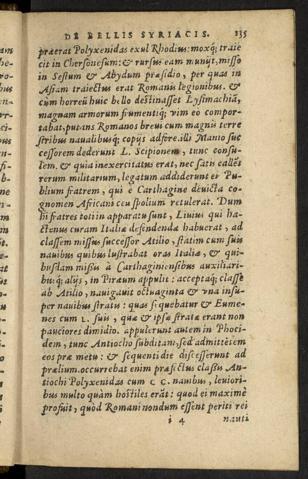 DE BELLIS SYRIACIS. 135
præerat Polyxenidas exul Rhodius: moxq́; traie
cit in Chersonesum: & rursus eam munijt, misso
in Sestum & Abydum præsidio, per quas in
Asiam traiectus erat Romanis legionibus. &
cum horreũ huic bello destinasset Lysimachiã,
magnam armorum frumentiq́; vim eo compor-
tabat, putans Romanos breui cum magnis terre
stribus naualibusq́; copijs adfore. illi Manio suc
cessorem dederunt L. Scipionem, tunc consu-
lem. & quia inexercitatus erat, nec satis callẽs
rerum militarium, legatum addiderunt ei Pu-
blium fratrem, qui è Carthagine deuicta co-
gnomen Africani ceu spolium retulerat. Dum
hi fratres toti in apparatu sunt, Liuius qui ha-
ctenus curam Italiæ defendendæ habuerat, ad
classem missus successor Atilio, statim cum suis
nauibus quibus lustrabat oras Italiæ, & qui-
busdam missis à Carthaginiensibus auxiliari-
busq́; alijs, in Piræum appulit: acceptaq́; classe
ab Atilio, nauigauit octuaginta & vna insu-
per nauibus stratis: quas sequebatur & Eume-
nes cum L. suis, quæ & ipsæ stratæ erant non
pauciores dimidio. appulerunt autem in Phoci-
dem, tunc Antiocho subditam, sed admittẽtem
eos præ metu: & sequenti die discesserunt ad
prælium. occurrebat enim præfectus classis An-
tiochi Polyxenidas cum CC. nauibus, leuiori-
bus multo quàm hostiles erãt: quod ei maximè
profuit, quòd Romani nondum essent periti rei
i 4 nauti